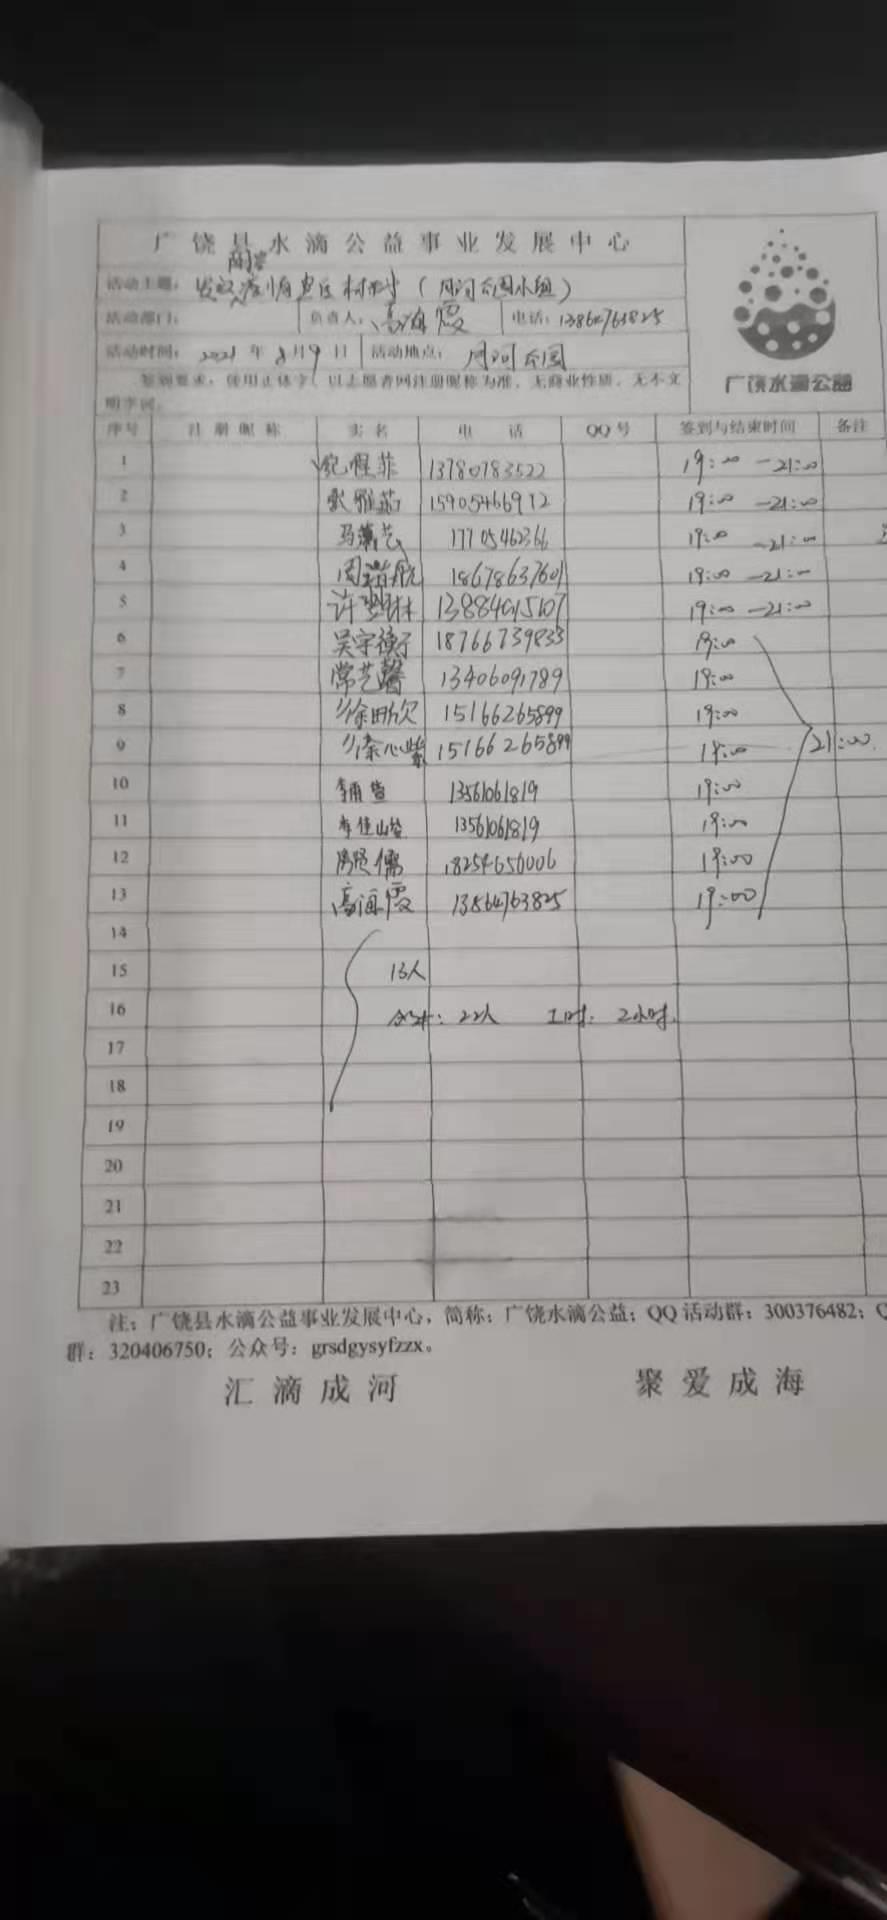 广饶县水滴公益事业发展中心
活动主题:
活动部门: 负责人: 高海霞 电话: 13864763825
活动时间: 2021年8月9日 活动地点: 月河公园
签到要求:使用正体字,以志愿者网注册昵称为准,无商业性质,无不文
明字词。
广饶水滴公益
序号 注册昵称 实名 电话 QQ号 签到与结束时间 备注
1 13780783522 19:00 —21:00
2 15905466912 19:00 —21:00
3 17705462366 19:00 —21:00
4 18678637601 19:00 —21:00
5 13884015107 19:00 —21:00
6 18766739833 19:00
7 常艺馨 13406091789 19:00
8 15166265899 19:00
9 徐心紫 15166265899 19:00 21:00
10 13561061819 19:00
11 13561061819 19:00
12 18254656006 19:00
13 高海霞 13864763825 19:00
14
15 13人
16 合计: 22人 工时: 2小时.
17
18
19
20
21
22
23
注:广饶县水滴公益事业发展中心,简称:广饶水滴公益;QQ活动群:300376482;Q
群:320406750;公众号:grsdgysyfzzx。
汇滴成河 聚爱成海